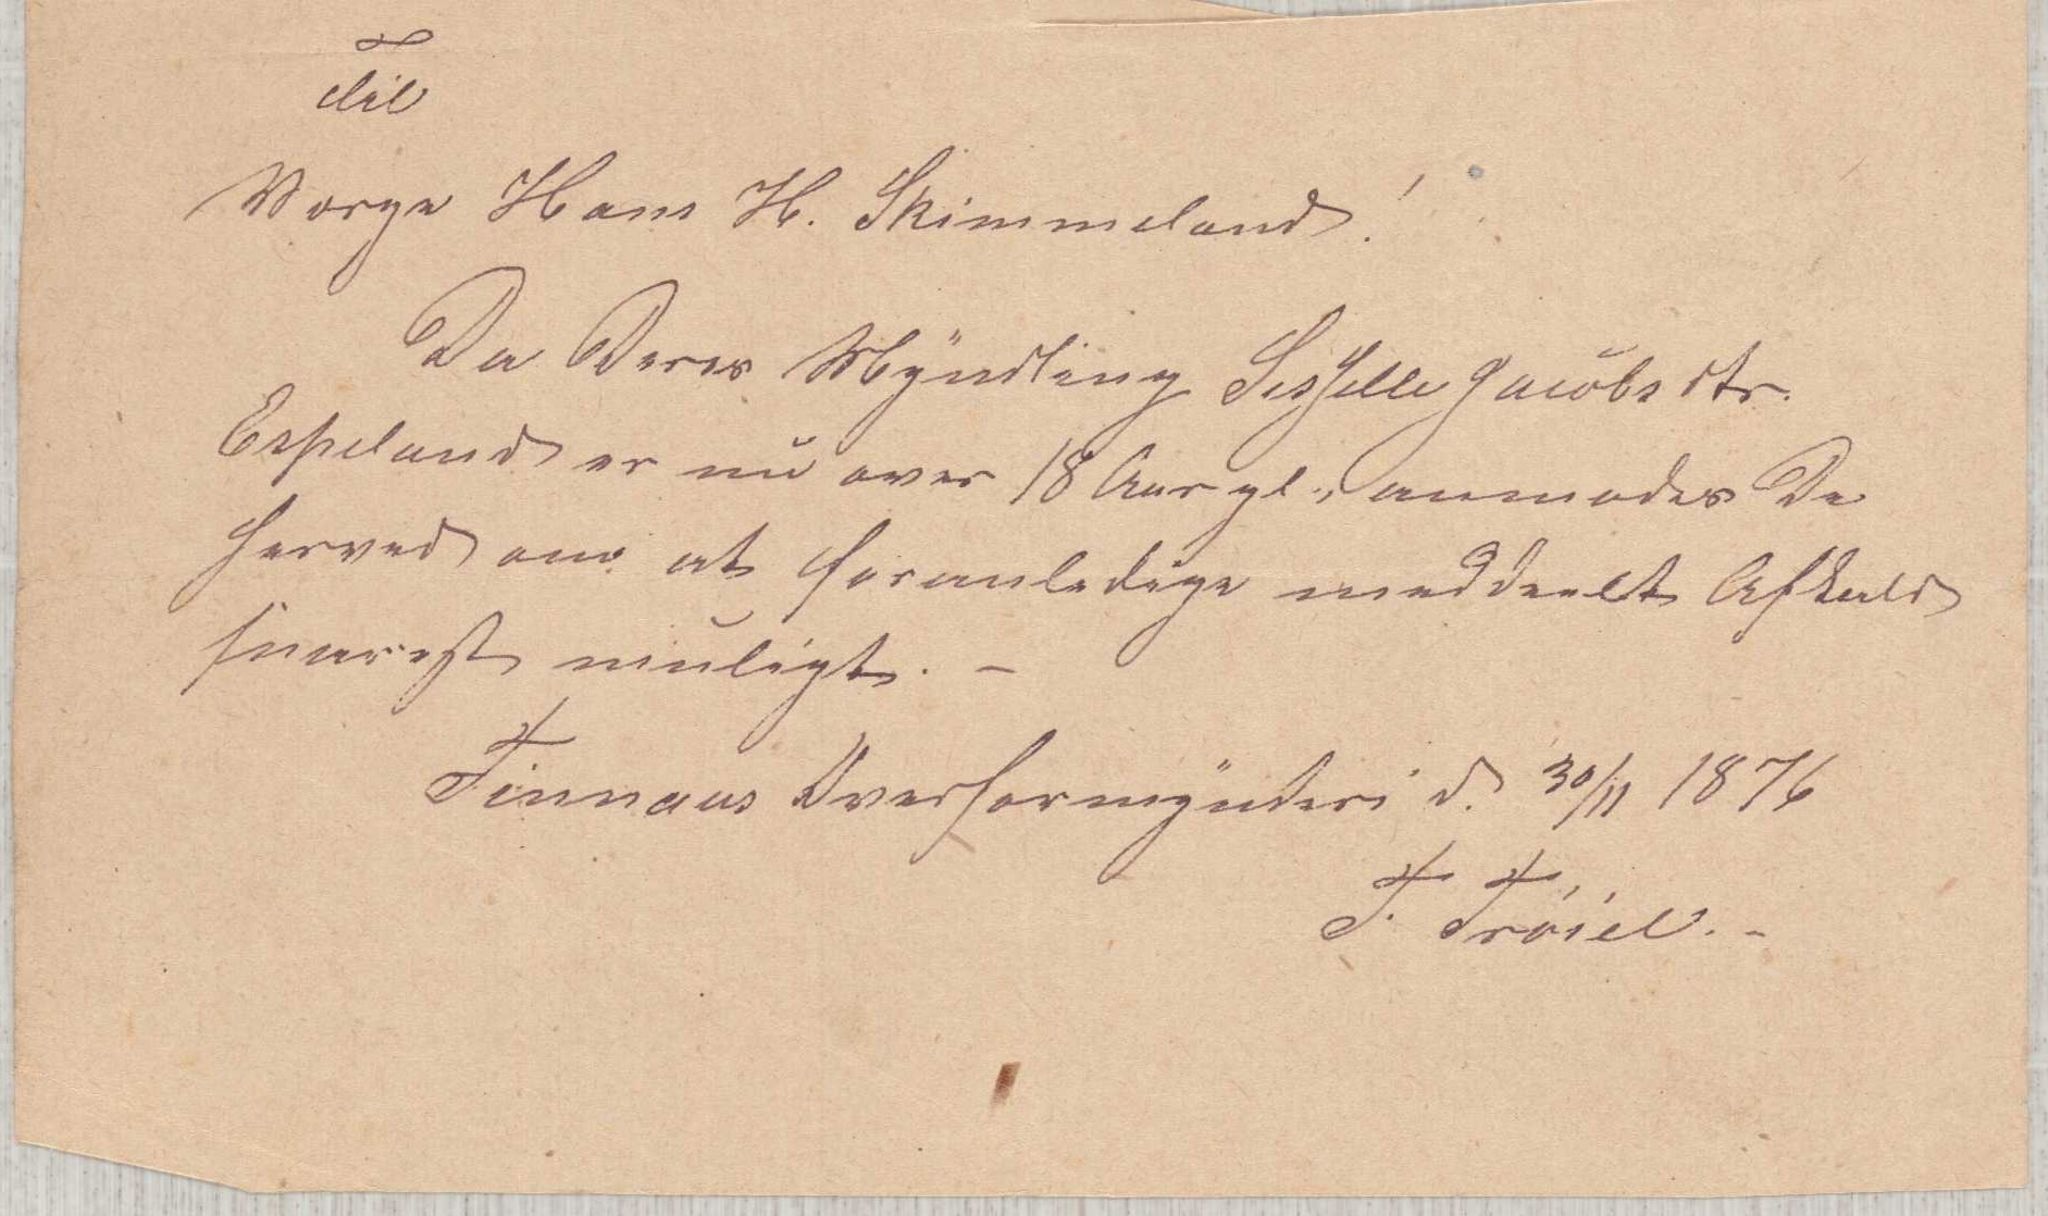 Til
Værge Hans H. Skimmeland!
Da Deres Myndling Sisselle Jacobsdtr.
Espeland er nu over 18 Aar gl., anmodes De
herved om at foranledige meddeelt Afkald
snarest muligt. –
Finnaas Overformynderi d. 30/11 1876
T. Trøiel. –